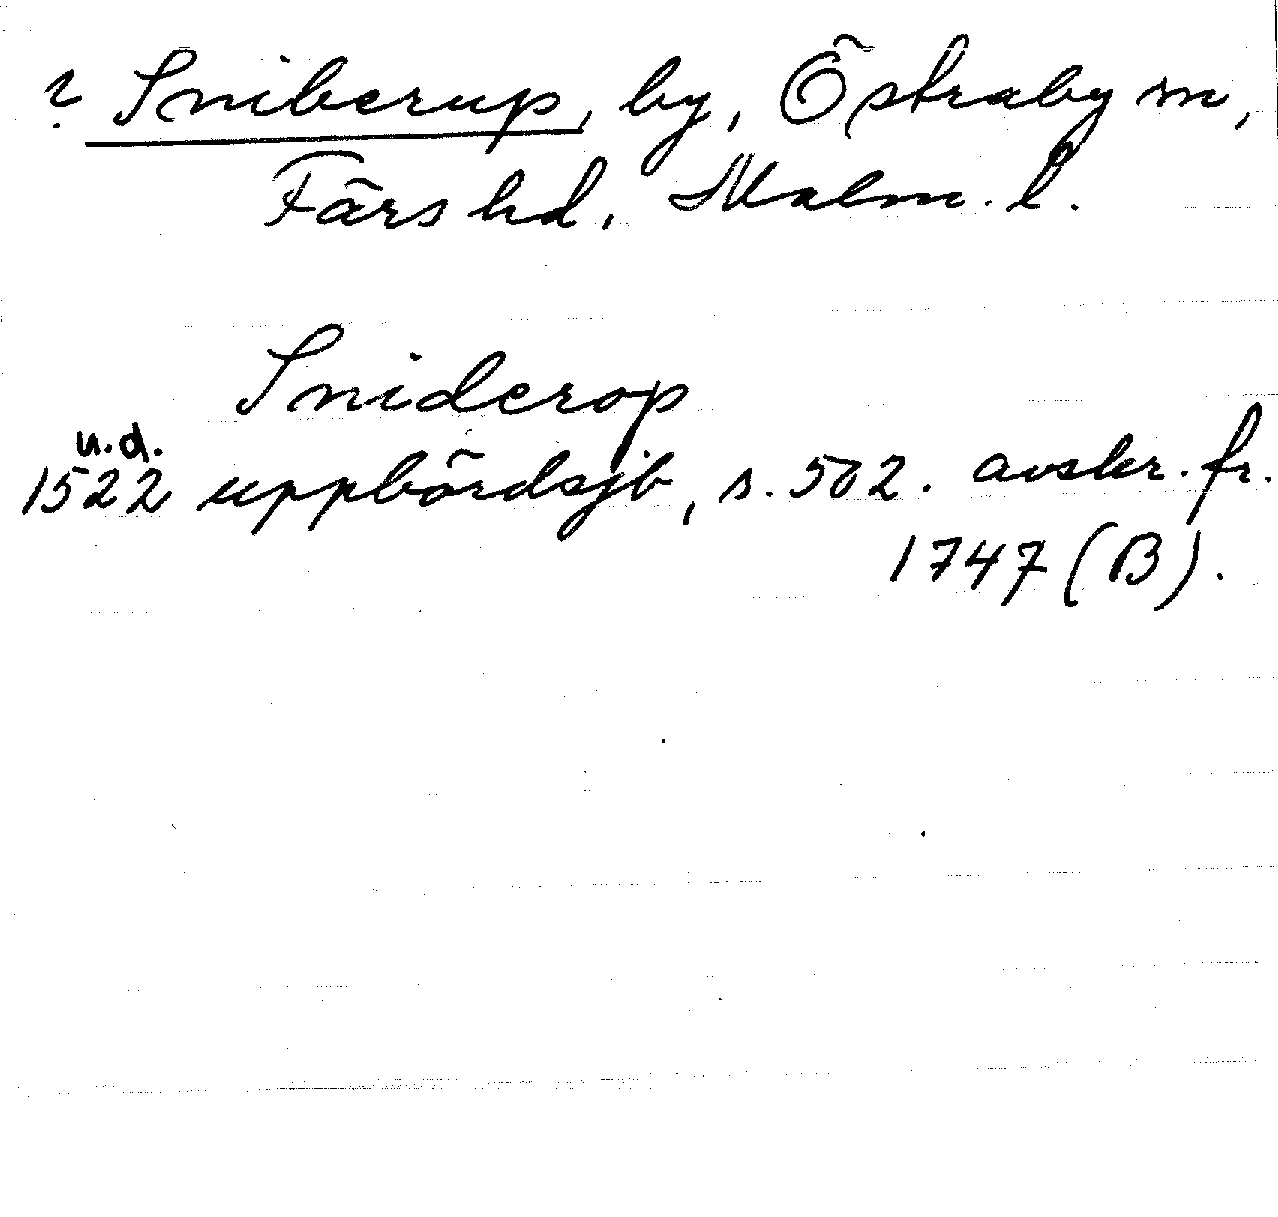 ? Sniberup, by, Östraby sn,
Färs hd, Malm. l.
Sniderop
u.d.
1522 uppbördsjb, s. 502. avskr. fr.
1747 (B).